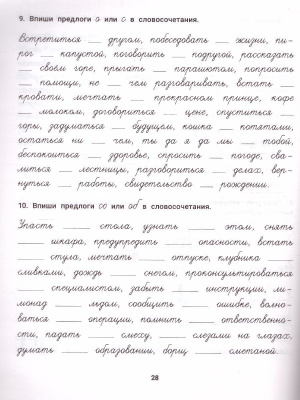 9. Впиши предлоги о или с в словосочетания.
Встретиться __ другом, побеседовать __ жизни, пи-
рог __ капустой, поговорить __ подругой, рассказать
__ своём горе, прыгать __ парашютом, попросить
__ помощи, не __ чем разговаривать, встать __
кровати, мечтать __ прекрасном принце, кофе
__ молоком, договориться __ цене, спуститься __
горы, задуматься __ будущем, кошка __ котятами,
остаться ни __ чем, ты да я да мы __ тобой,
беспокоиться __ здоровье, спросить __ погоде, сва-
литься __ лестницы, разговориться __ делах, вер-
нуться __ работы, свидетельство __ рождении.
10. Впиши предлоги со или об в словосочетания.
Упасть __ стола, узнать __ этом, снять
__ шкафа, предупредить __ опасности, встать
__ стула, мечтать __ отпуске, клубника __
сливками, дождь __ снегом, проконсультироваться
__ специалистом, забыть __ инструкции, ли-
монад __ льдом, сообщить __ ошибке, волно-
ваться __ операции, помнить __ ответственно-
сти, падать __ смеху, __ слезами на глазах,
думать __ образовании, борщ __ сметаной.
28